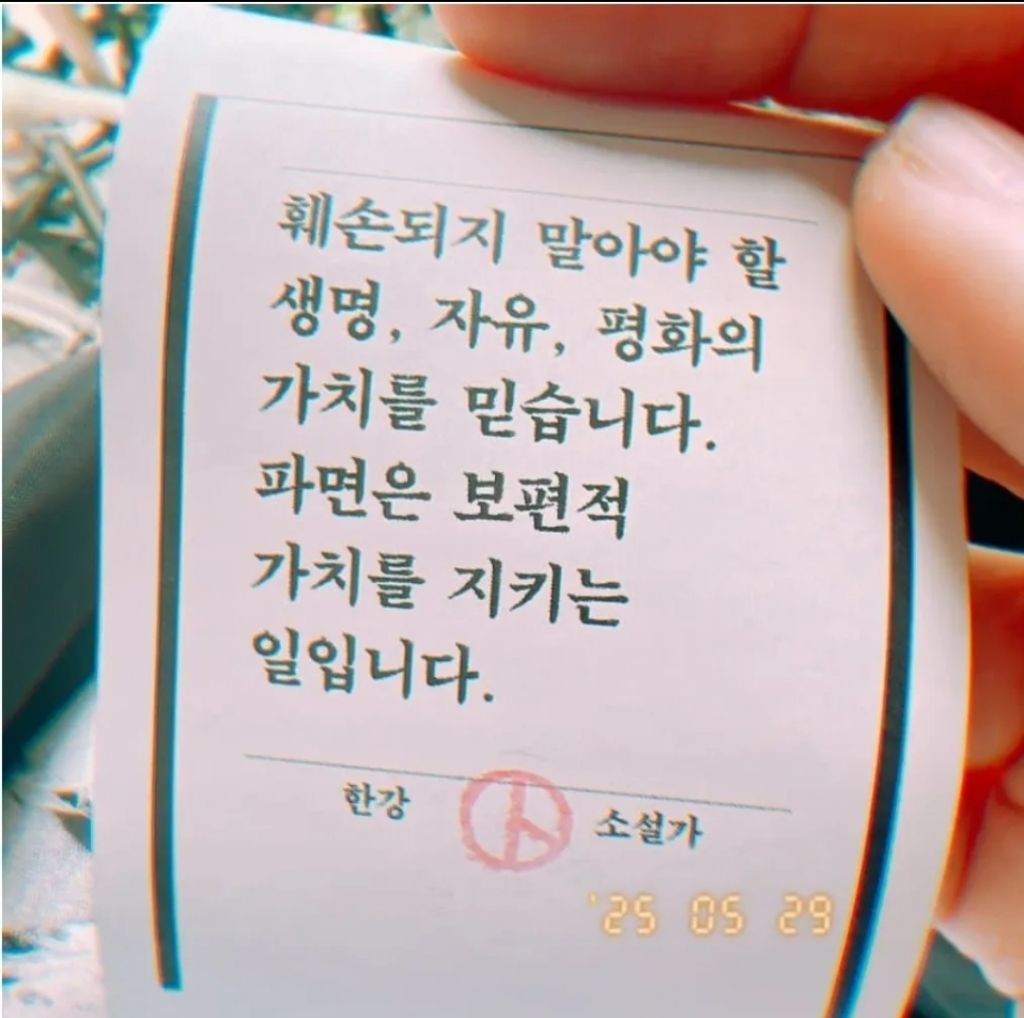 훼손되지 말아야 할
생명, 자유, 평화의
가치를 믿습니다.
파면은 보편적
가치를 지키는
일입니다.
한강 소설가
'25 05 29